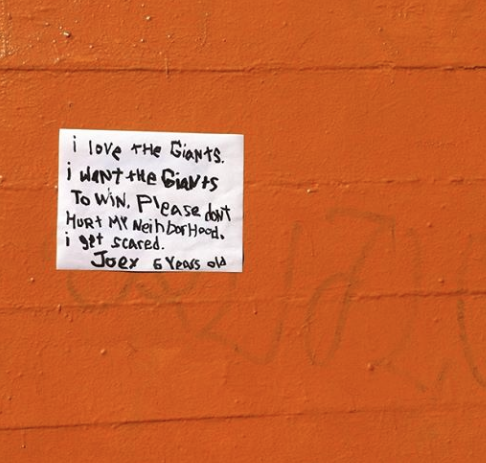 i love tHe GiANTS.
i wANt tHe GiANtS
To WiN. Please don't
HURT MY NeiHborHood.
i get scared.
Joey 6 Years old